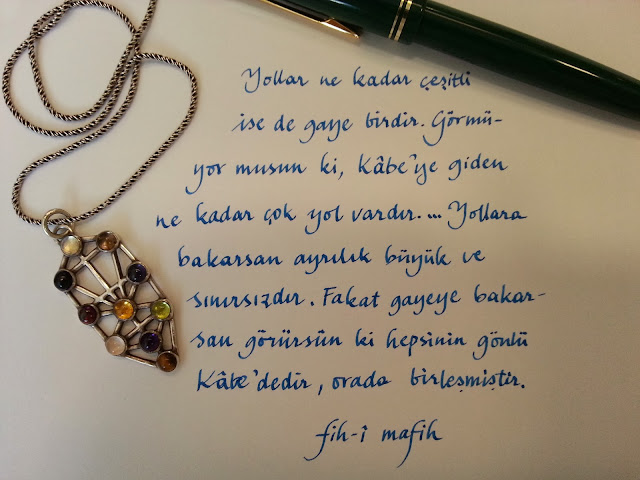 Yollar ne kadar çeşitli
ise de gaye birdir. Görmü-
yor musun ki, Kâbe'ye giden
ne kadar çok yol vardır.... Yollara
bakarsan ayrılık büyük ve
sınırsızdır. Fakat gayeye bakar-
san görürsün ki hepsinin gönlü
Kâbe'dedir, orada birleşmiştir.
fih-i mafih